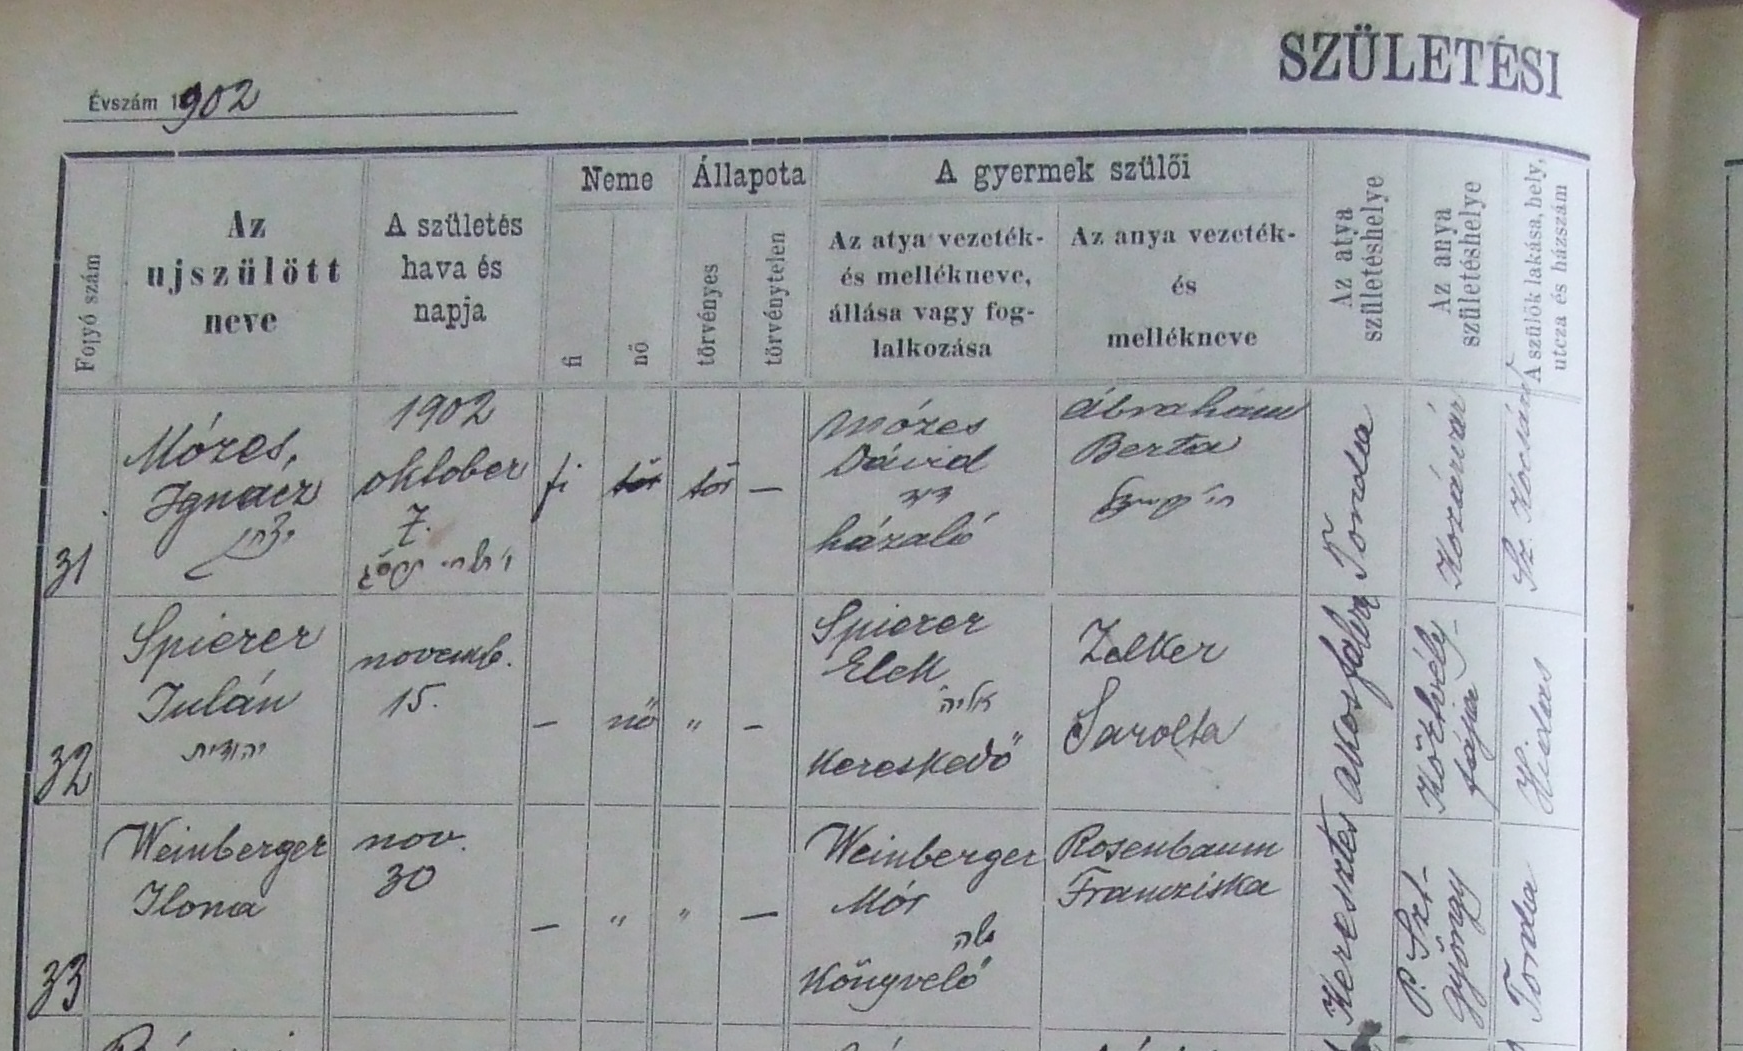 SZÜLETÉSI
Évszám 1902
Folyó szám
Az
ujszülött
neve
A születés
hava és
napja
Neme
fi
nő
Állapota
törvényes
törvénytelen
A gyermek szülői
Az atya vezeték-
és mellékneve,
állása vagy fog-
lalkozása
Az anya vezeték-
és
mellékneve
Az atya
születéshelye
Az anya
születéshelye
A szülők lakása, hely,
utcza és házszám
31
Mózes,
Ignacz
1902
oktober
7.
fi
tör
tör
—
Mózes
Dávid
דוד
házaló
Ábrahám
Berta
Torda
Kozárvár
Sz. Kocsárd
32
Spierer
Julán
יהודית
novemb.
15.
—
nő
"
—
Spierer
Elek
אליה
Kereskedő
Zelker
Sarolta
Akosfalva
Hidas
33
Weinberger
Ilona
nov.
30
—
"
"
—
Weinberger
Mór
משה
Könyvelő
Rosenbaum
Francziska
Keresztes
P. Szt-
gyöngy
Torda